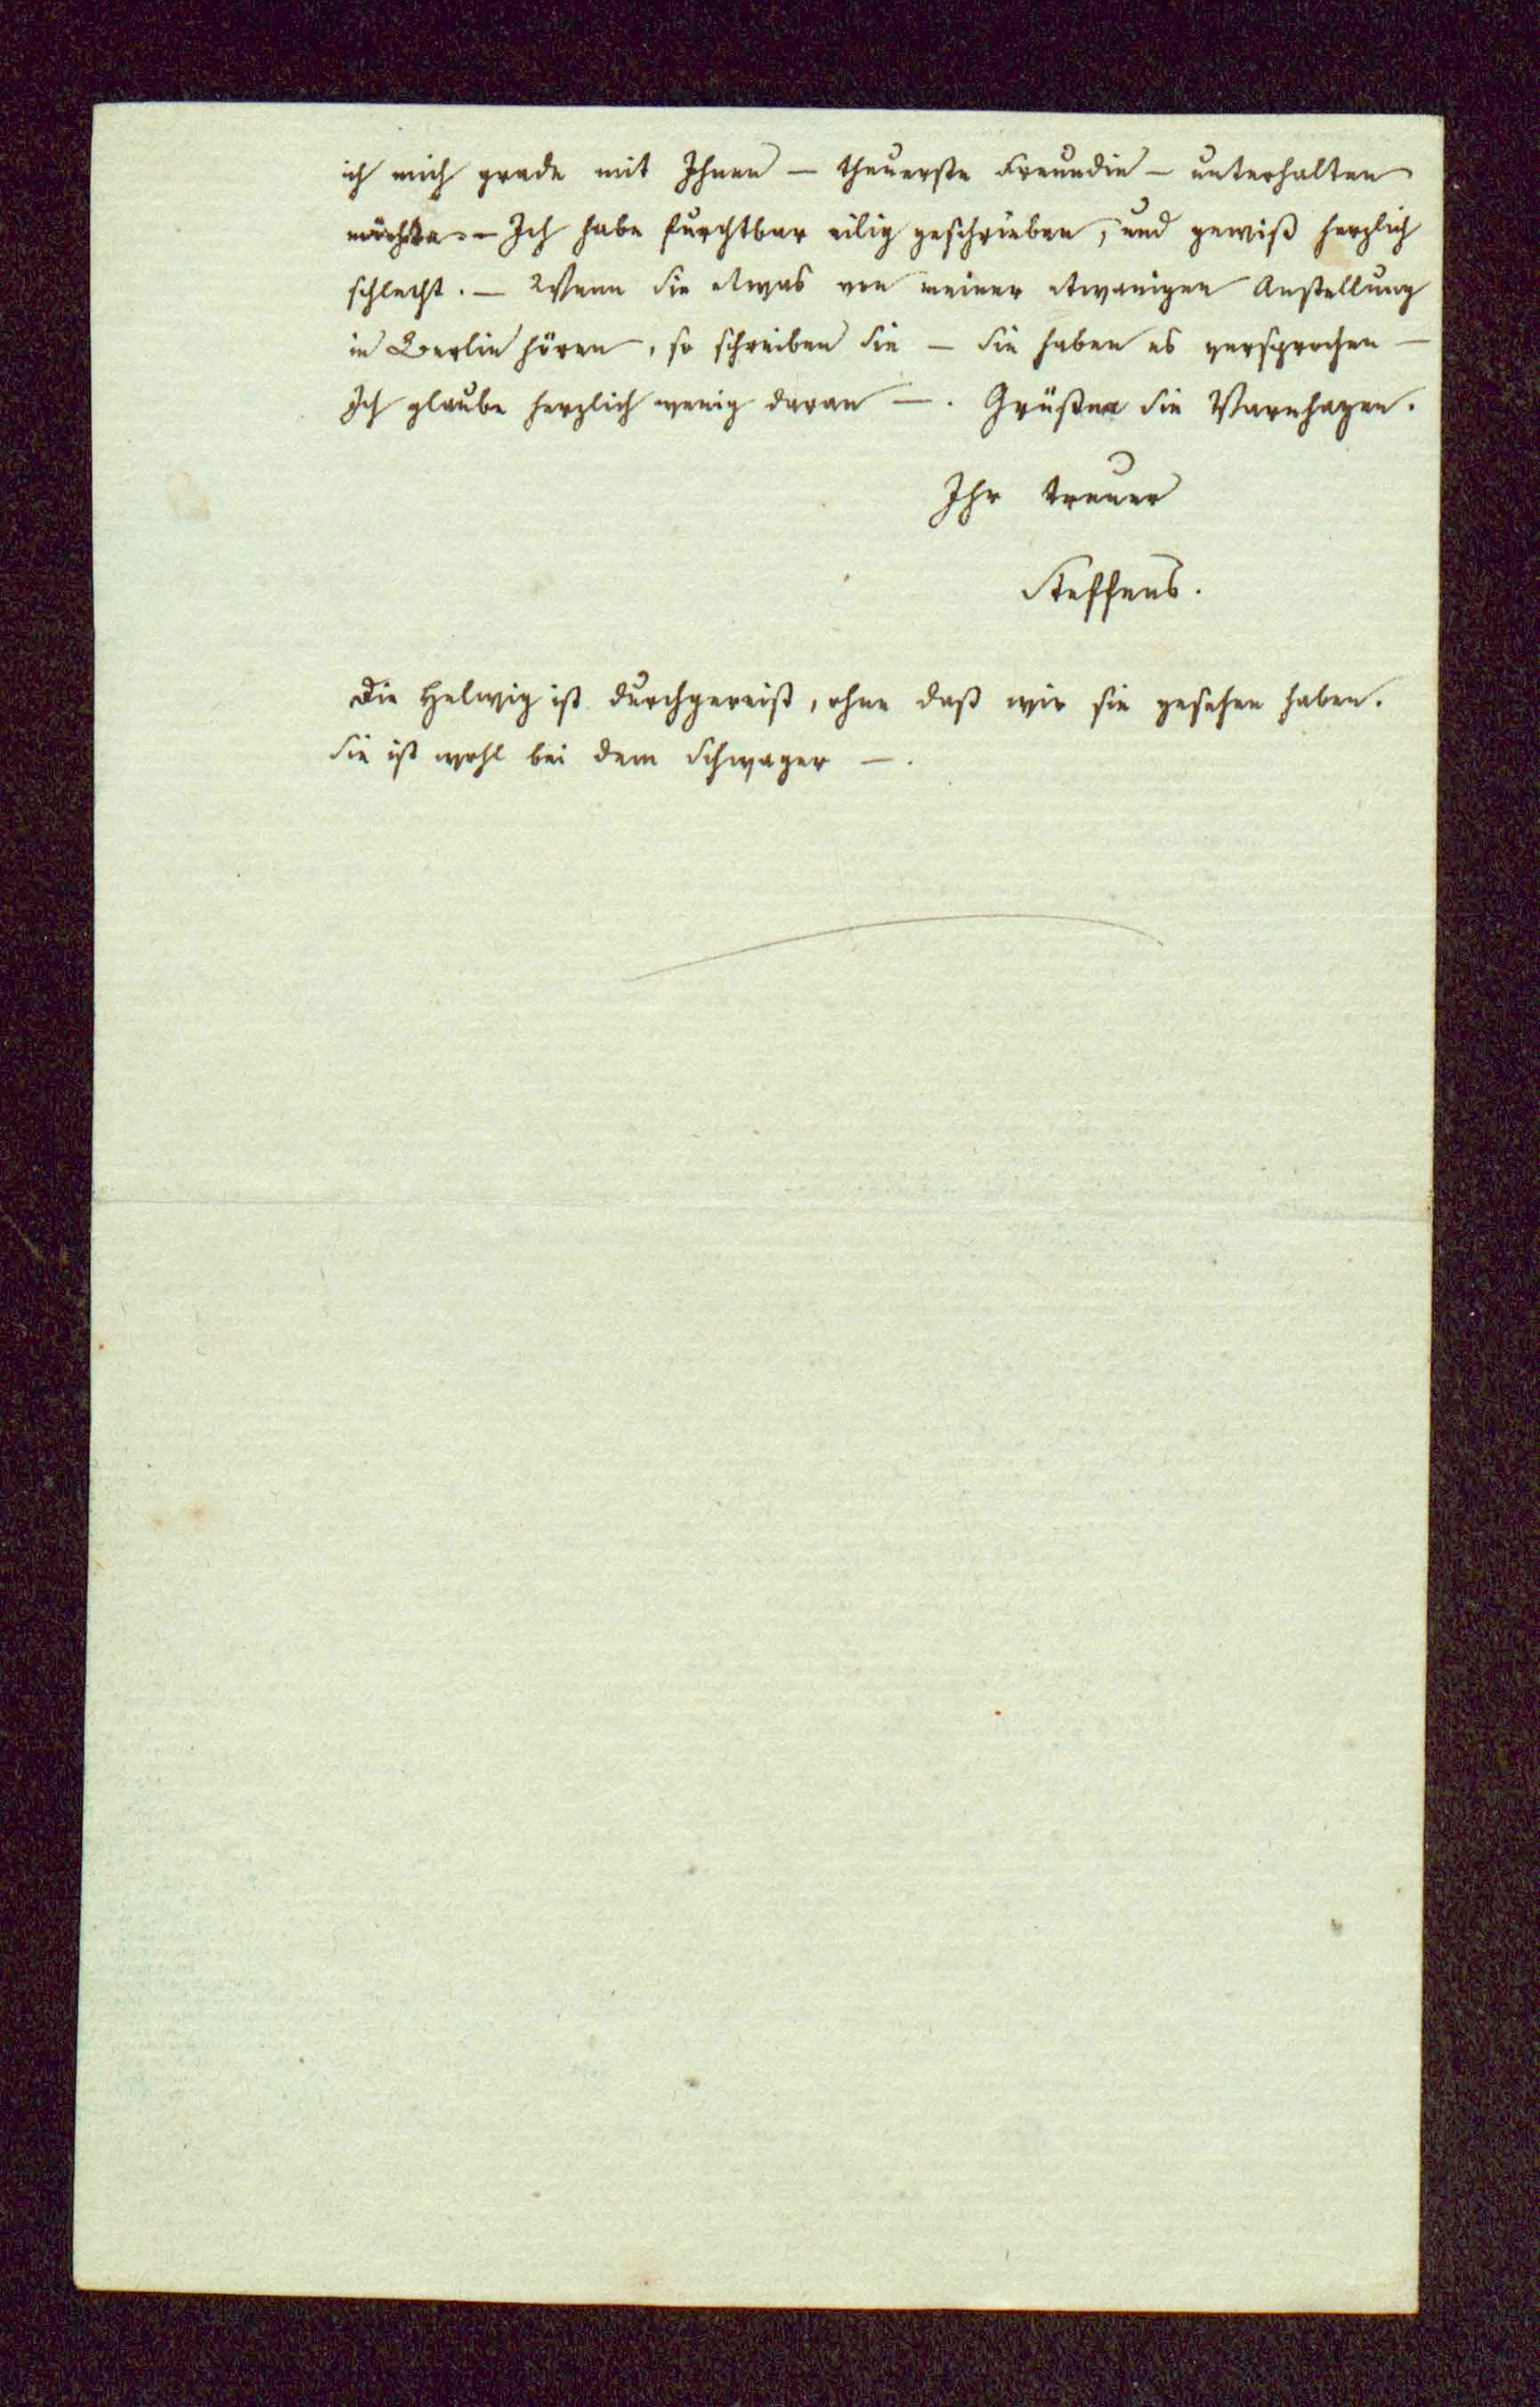 ich mich grade mit Ihnen — theuerste Freundin — unterhalten
möchte. — Ich habe furchtbar eilig geschrieben, und gewiß herzlich
schlecht. — Wenn Sie etwas von meiner etwanigen Anstellung
in Berlin hören, so schreiben Sie — Sie haben es versprochen —
Ich glaube herzlich wenig daran —. Grüßen Sie Varnhagen.
Ihr treuer
Steffens.
Die Helwig ist durchgereist, ohne daß wir sie gesehen haben.
Sie ist wohl bei dem Schwager —.